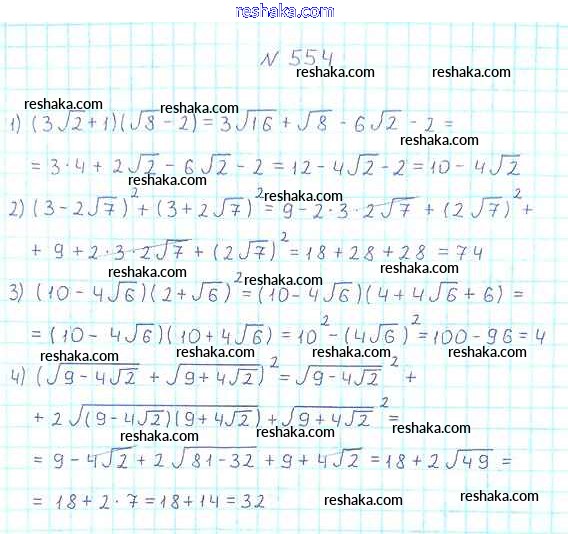 reshaka.com
N 554
reshaka.com reshaka.com
reshaka.com reshaka.com
1) (3√2+1)(√8-2) = 3√16 + √8 - 6√2 - 2 =
reshaka.com
= 3·4 + 2√2 - 6√2 - 2 = 12 - 4√2 - 2 = 10 - 4√2
reshaka.com reshaka.com
2) (3-2√7)² + (3+2√7)² = 9 - 2·3·2√7 + (2√7)² +
+ 9 + 2·3·2√7 + (2√7)² = 18 + 28 + 28 = 74
reshaka.com reshaka.com reshaka.com
3) (10 - 4√6)(2+√6)² = (10 - 4√6)(4 + 4√6 + 6) =
= (10 - 4√6)(10 + 4√6) = 10² - (4√6)² = 100 - 96 = 4
reshaka.com reshaka.com reshaka.com
4) (√(9-4√2) + √(9+4√2))² = √(9-4√2)² +
+ 2√((9-4√2)(9+4√2)) + √(9+4√2)² =
reshaka.com reshaka.com reshaka.com
= 9 - 4√2 + 2√(81-32) + 9 + 4√2 = 18 + 2√49 =
= 18 + 2·7 = 18 + 14 = 32
reshaka.com reshaka.com